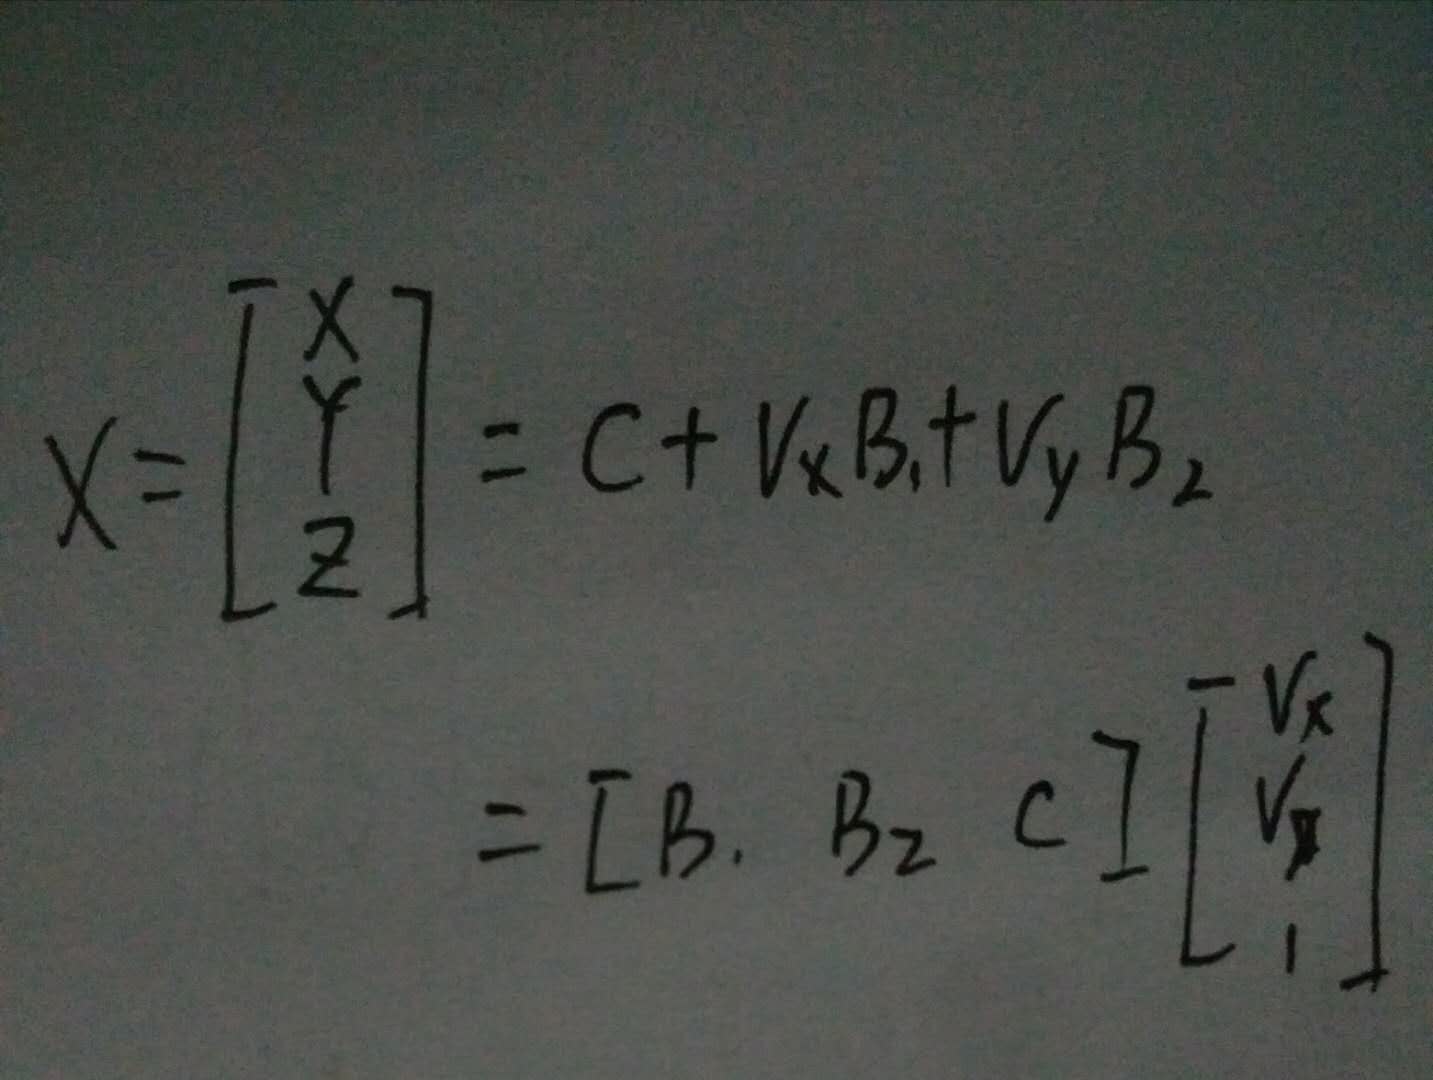 X = [X Y Z] = C + VxB1 + VyB2
= [B1 B2 C] [Vx Vy 1]